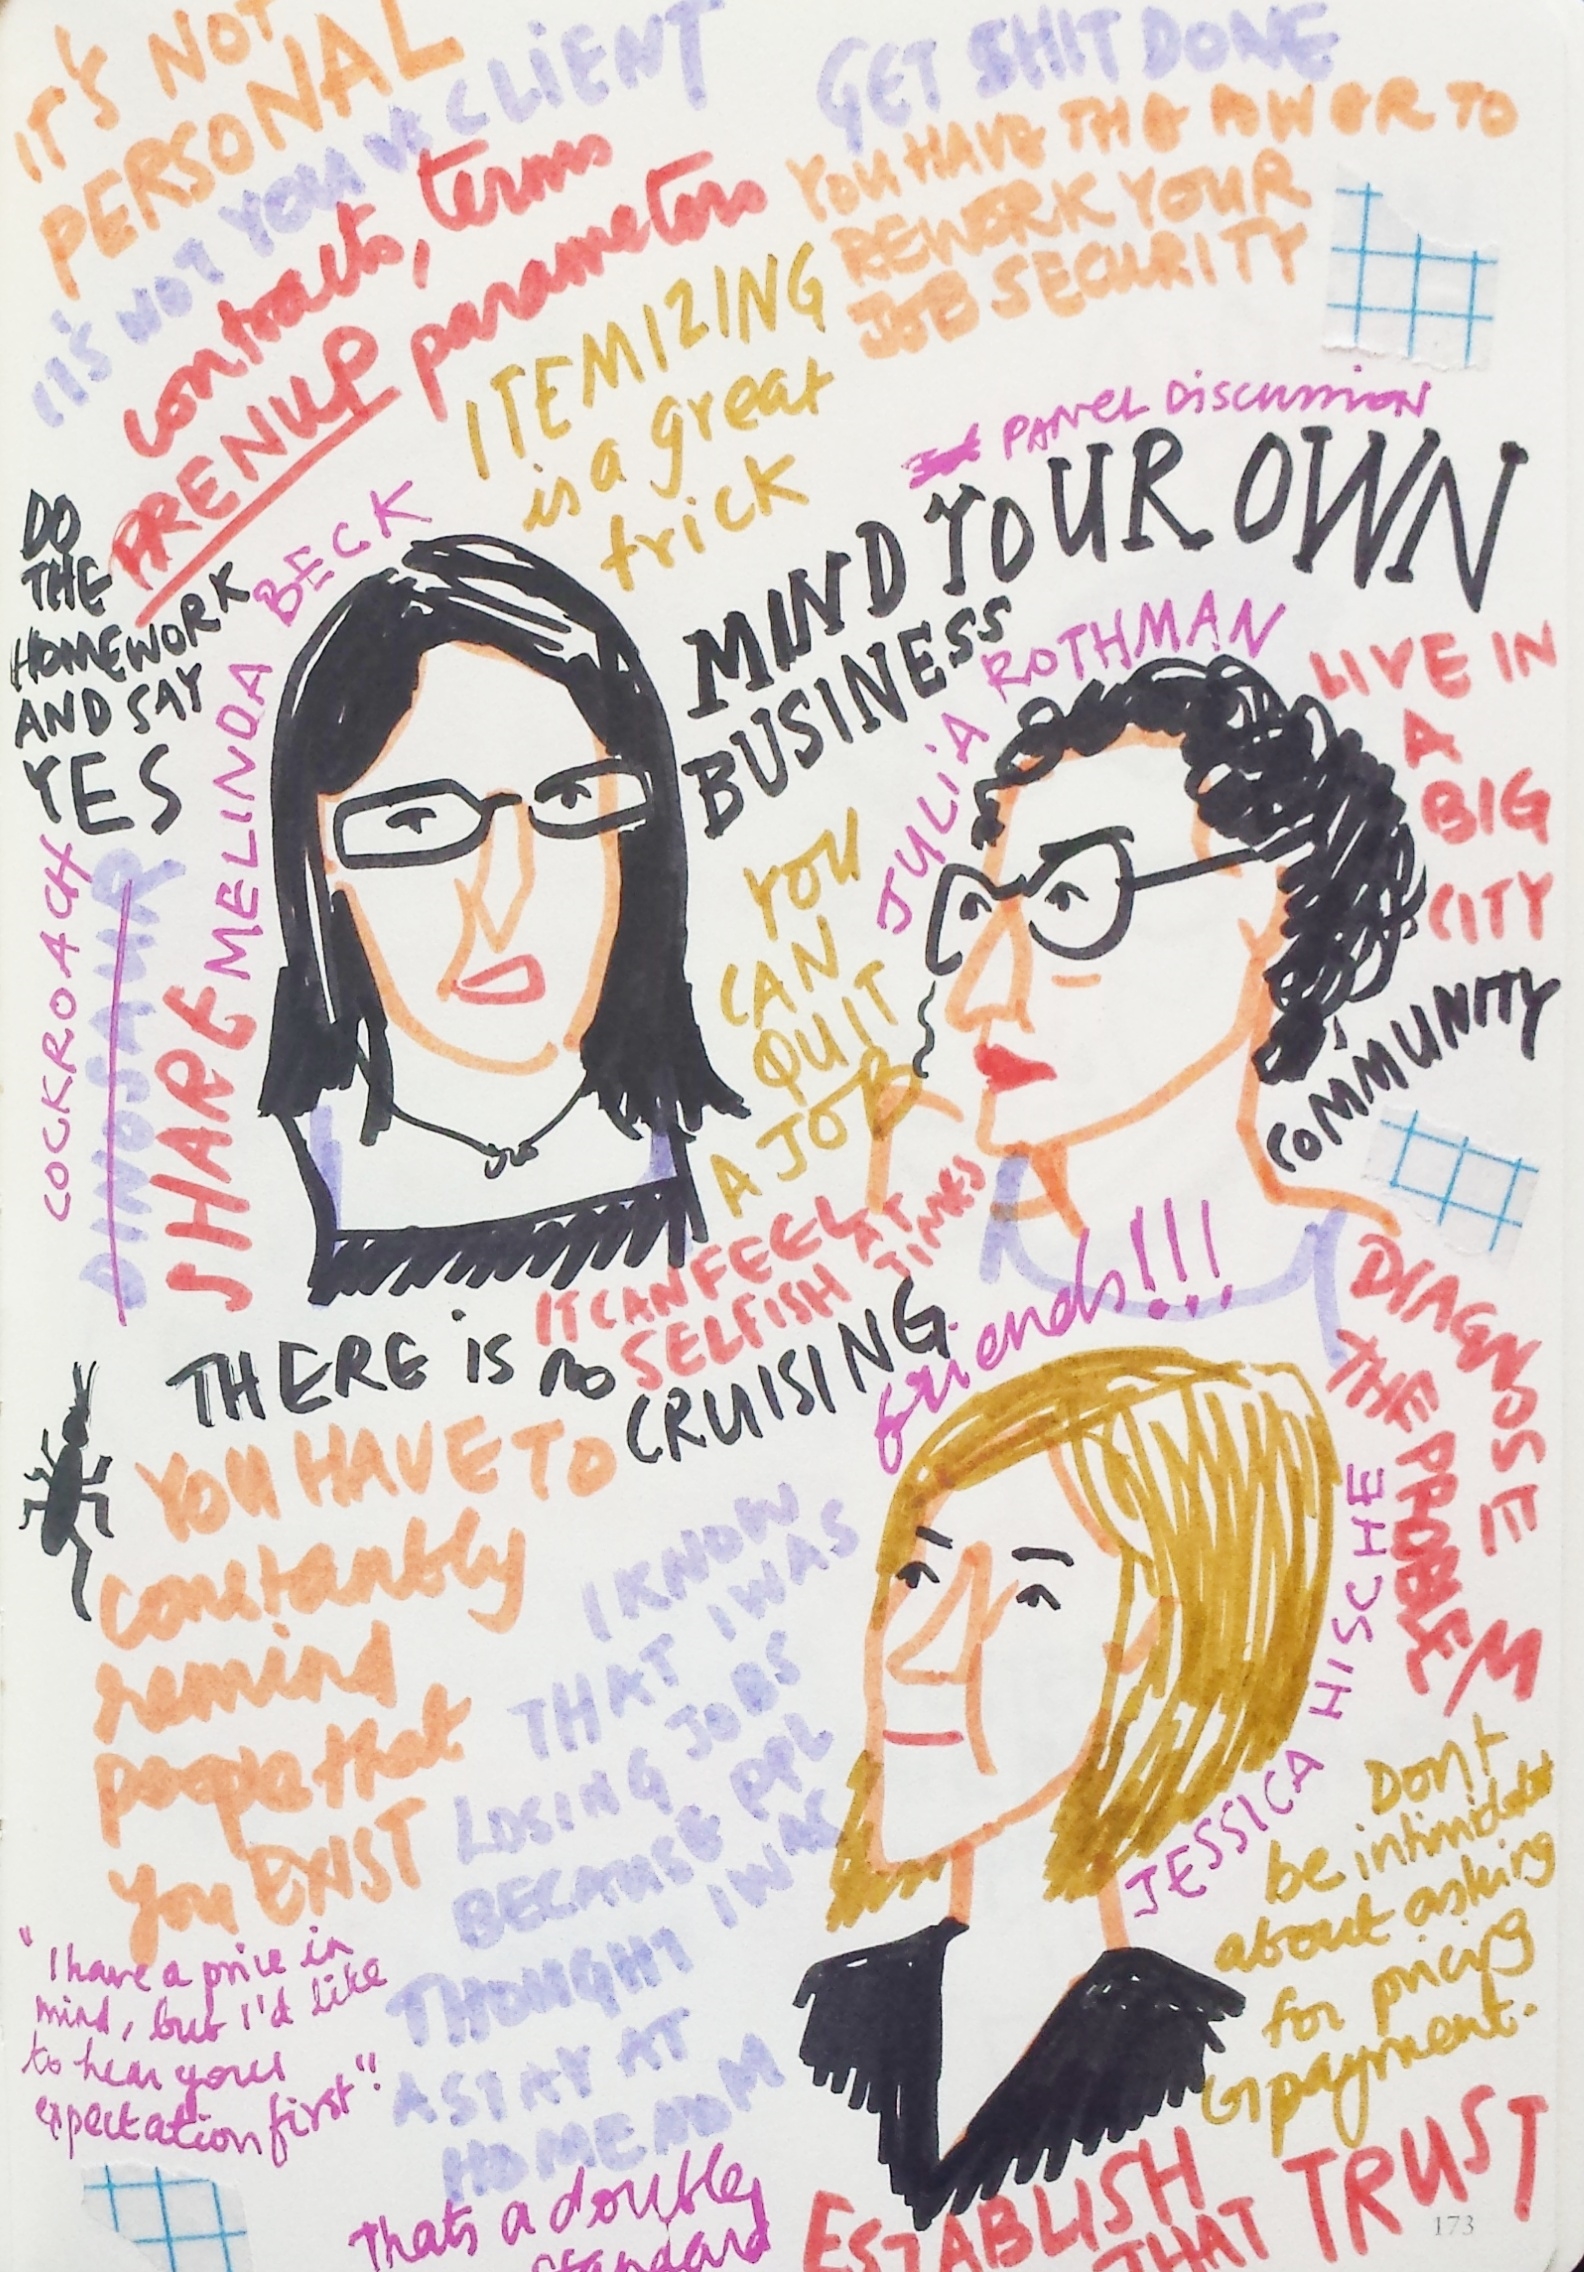 IT'S NOT
PERSONAL
IT'S NOT YOU VS CLIENT
contracts, terms
PRENUP parameters
GET SHIT DONE
YOU HAVE THE POWER TO
REWORK YOUR
JOB SECURITY
ITEMIZING
is a great
trick
PANEL DISCUSSION
MIND YOUR OWN
BUSINESS
DO
THE
HOMEWORK
AND SAY
YES
MELINDA BECK
JULIA ROTHMAN
LIVE IN
A
BIG
CITY
COMMUNITY
COCKROACH
DINOSAUR
SHARE
YOU
CAN
QUIT
A JOB
IT CAN FEEL AT TIMES
SELFISH
THERE IS no
CRUISING
friends!!!
DIAGNOSE IT
THE PROBLEM
YOU HAVE TO
constantly
remind
people that
you EXIST
I KNOW
THAT I WAS
LOSING JOBS
BECAUSE PPL
THOUGHT I WAS
A STAY AT
HOME MOM
Thats a double
standard
JESSICA HISCHE
Don't
be intimidated
about asking
for pricing
payment.
"I have a price in
mind, but I'd like
to hear your
expectation first"!
ESTABLISH
THAT TRUST
173